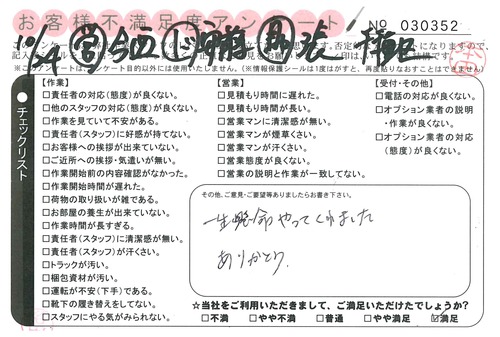 お客様不満足度アンケート
No 030352
チェックリスト
【作業】
□責任者の対応(態度)が良くない。
□他のスタッフの対応(態度)が良くない。
□作業を見ていて不安がある。
□責任者(スタッフ)に好感が持てない。
□お客様への挨拶が出来ていない。
□ご近所への挨拶・気遣いが無い。
□作業開始前の内容確認がなかった。
□作業開始時間が遅れた。
□荷物の取り扱いが雑である。
□お部屋の養生が出来ていない。
□作業時間が長すぎる。
□責任者(スタッフ)に清潔感が無い。
□責任者(スタッフ)が汗くさい。
□トラックが汚い。
□梱包資材が汚い。
□運転が不安(下手)である。
□靴下の履き替えをしてない。
□スタッフにやる気がみられない。
【営業】
□見積もり時間に遅れた。
□見積もり時間が長い。
□営業マンに清潔感が無い。
□営業マンが煙草くさい。
□営業マンが汗くさい。
□営業態度が良くない。
□営業の説明と作業が一致してない。
【受付・その他】
□電話の対応が良くない。
□オプション業者の説明
・作業が良くない。
□オプション業者の対応
(態度)が良くない。
その他、ご意見・ご要望等ありましたらお書き下さい。
一生懸命やってくれました
ありがとう
☆当社をご利用いただきまして、ご満足いただけたでしょうか?
□不満 □やや不満 □普通 □やや満足 ☑満足